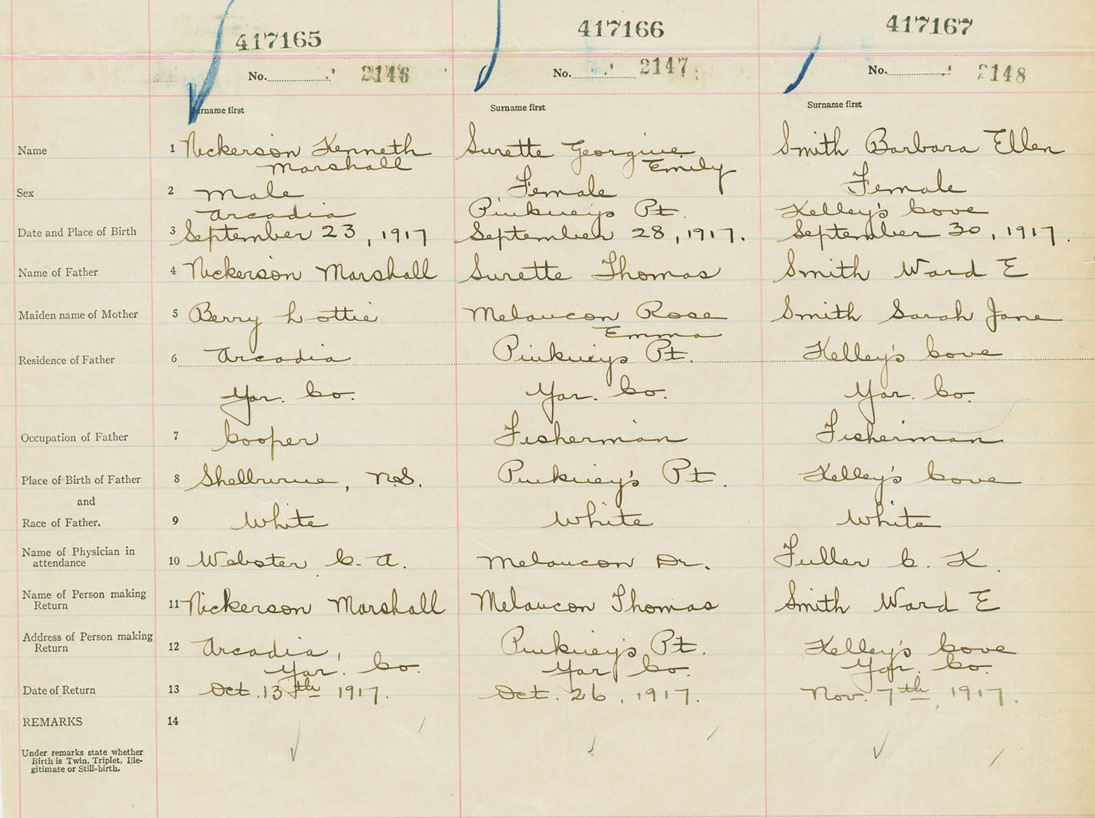 417165 417166 417167
No. 2146 No. 2147 No. 2148
Surname first Surname first Surname first
Name 1 Nickerson Kenneth Surette Georgine Smith Barbara Ellen
Marshall Emily
Sex 2 Male Female Female
Arcadia Pinkney's Pt. Kelley's Cove
Date and Place of Birth 3 September 23, 1917 September 28, 1917. September 30, 1917.
Name of Father 4 Nickerson Marshall Surette Thomas Smith Ward E
Maiden name of Mother 5 Berry Lottie Melancon Rose Smith Sarah Jane
Emma
Residence of Father 6 Arcadia Pinkney's Pt. Kelley's Cove
Yar. Co. Yar. Co. Yar. Co.
Occupation of Father 7 Cooper Fisherman Fisherman
Place of Birth of Father 8 Shelburne, N.S. Pinkney's Pt. Kelley's Cove
and
Race of Father. 9 White White White
Name of Physician in
attendance 10 Webster C. A. Melancon Dr. Fuller C. K.
Name of Person making
Return 11 Nickerson Marshall Melancon Thomas Smith Ward E
Address of Person making
Return 12 Arcadia, Pinkney's Pt. Kelley's Cove
Yar. Co. Yar Co. Yar. Co.
Date of Return 13 Oct. 13th 1917. Oct. 26, 1917. Nov. 7th, 1917.
REMARKS 14
Under remarks state whether
Birth is Twin, Triplet, Ille-
gitimate or Still-birth.